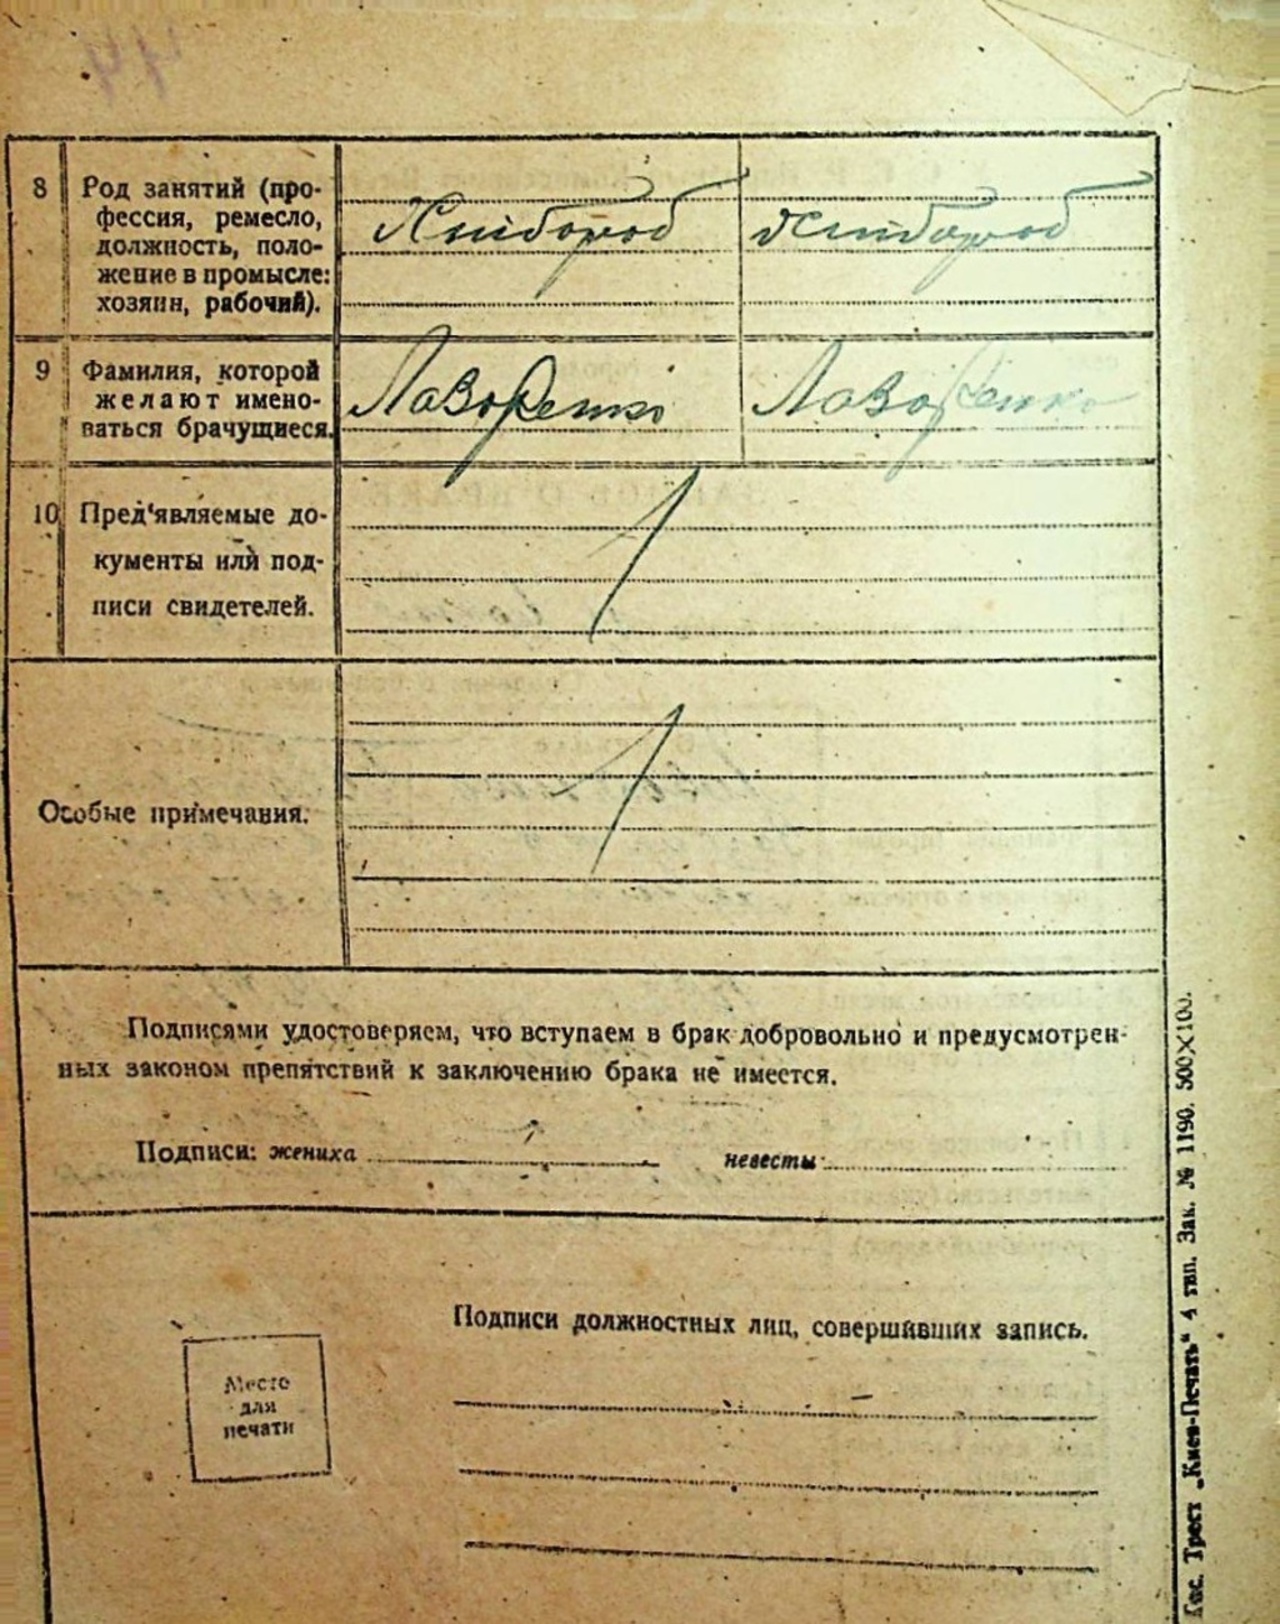 44
8 Род занятий (про-
фессия, ремесло,
должность, поло-
жение в промысле:
хозяин, рабочий).
Хлібороб Хлібороб
9 Фамилия, которой
желают имено-
ваться брачущиеся.
Лазоренко Лазоренко
10 Пред‘являемые до-
кументы или под-
писи свидетелей.
Особые примечания.
Подписями удостоверяем, что вступаем в брак добровольно и предусмотрен-
ных законом препятствий к заключению брака не имеется.
Подписи: жениха невесты
Подписи должностных лиц, совершивших запись.
Место
для
печати
Гос. Трест „Киев-Печать“ 4 тип. Зак. № 1190. 500X100.